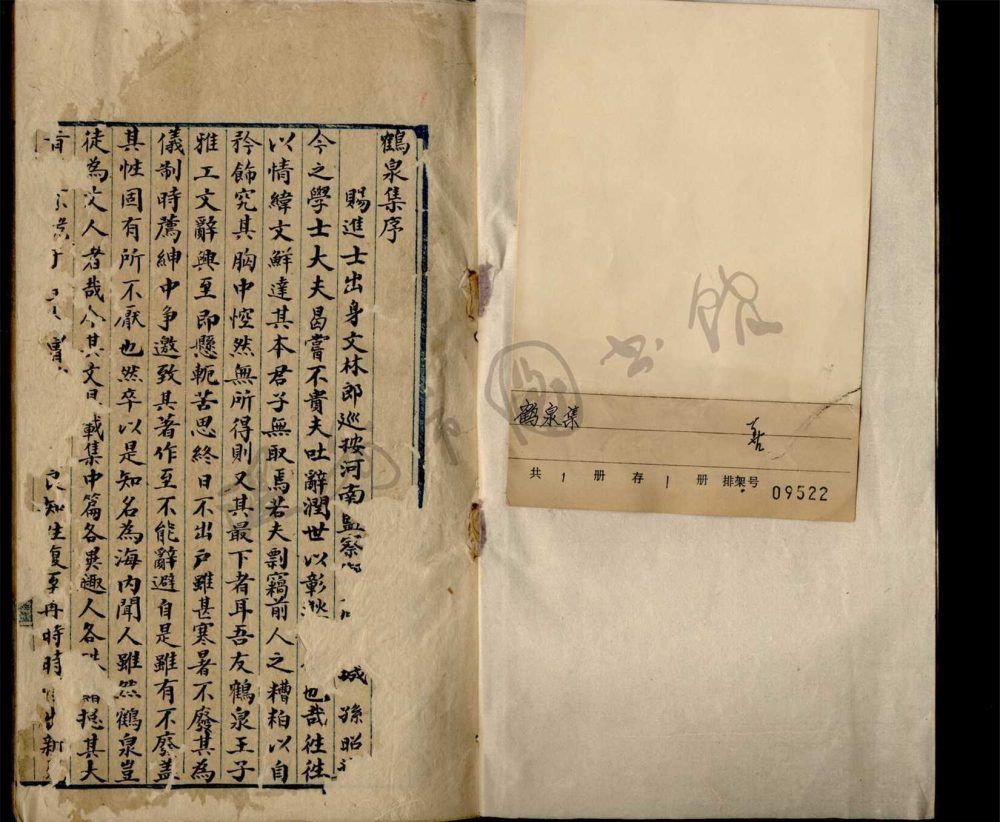 鶴泉集序
賜進士出身文林郎巡按河南監察 城孫昭
今之學士大夫曷嘗不貴夫吐辭潤世以彰 也哉往往
以情緯文鮮達其本君子無取焉若夫剽竊前人之糟粕以自
矜飾究其胸中悾然無所得則又其最下者耳吾友鶴泉王子
雅工文辭興至即懸軛苦思終日不出戶雖甚寒暑不廢其為
儀制時薦紳中爭邀致其著作至不能辭避自是雖有不廢蓋
其性固有所不厭也然卒以是知名為海内聞人雖然鶴泉豈
徒為文人者哉今其文具載集中篇各異趣人各 其大
良知生復至再時時 新
鶴泉集
善
共 1 册 存 1 册 排架号 09522